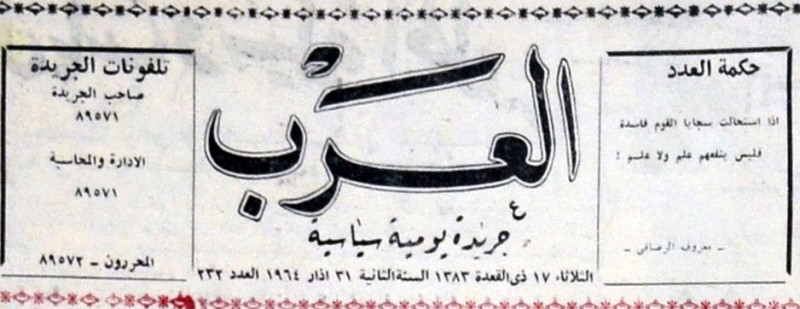 حكمة العدد
اذا استحالت سجايا القوم فاسدة
فليس ينفعهم علم ولا علم !
ـ معروف الرصافي ـ
العرب
جريدة يومية سياسية
الثلاثاء ١٧ ذي القعدة ١٣٨٣ السنة الثانية ٣١ اذار ١٩٦٤ العدد ٢٣٢
تلفونات الجريدة
صاحب الجريدة
٨٩٥٧١
الادارة والمحاسبة
٨٩٥٧١
المحررون ـ ٨٩٥٧٢